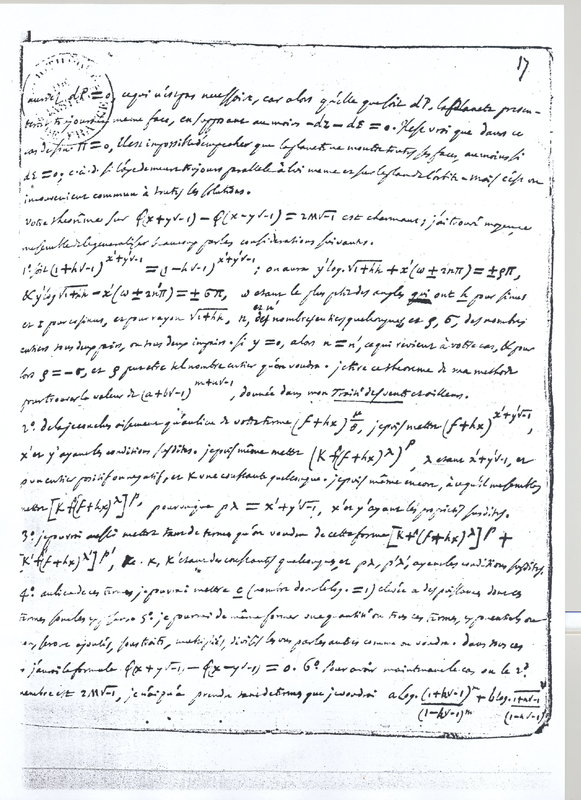 17
aussi dP = 0, ce qui n'est pas necessaire, car alors quelle que soit dP, la planete presen-
toujours meme face, en supposant au moins -dZ - dE = 0. Il est vrai que dans ce
cas de sin. Π = 0, il est impossible d'empecher que la planete ne montre toutes ses faces, au moins si
dE = 0, c. à. d. si l'axe demeure toujours parallele à lui meme et sur le plan de l'orbite - mais c'est un
inconvenient commun à toutes les solutions.
votre théorème sur φ(x+y√-1) - φ(x-y√-1) = 2M√-1 est charmant; j'ai trouvé moyen ce
me semble de le generaliser beaucoup par les considerations suivantes.
1°. soit (1+h√-1)^{x'+y'√-1} = (1-h√-1)^{x'+y'√-1}; on aura y'log.√1+hh + x'(ω±2nπ) = ±ρπ,
& y'log √1+hh - x'(ω±2n'π) = ±σπ, ω etant le plus petit des angles qui ont h pour sinus
et 1 pour cosinus, et pour rayon √1+hh, n, et n' des nombres entiers quelconques, et ρ, σ, des nombres
entiers tous deux pairs, ou tous deux impairs. si y = 0, alors n = n', ce qui revient à votre cas, & pour
lors ρ = -σ, et ρ peut etre tel nombre entier qu'on voudra. je tire ce theoreme de ma methode
pour trouver la valeur de (a+b√-1)^{m+n√-1}, donnée dans mon Traité des vents et ailleurs.
2°. de là je conclus aisement qu'au lieu de votre terme (f+hx)^{μ/δ}, je puis mettre (f+hx)^{x'+y'√-1},
x' et y' ayant les conditions susdites. je puis même mettre (K+(f+hx)^λ)^ρ, λ etant x'+y'√-1, et
ρ un entier positif ou negatif, et K une constante quelconque. je puis même encore, à ce qu'il me semble
mettre [K+(f+hx)^λ]^ρ, pourvu que ρλ = x'+y'√-1, x' et y' ayant les proprietés susdites.
3°. je pourrai aussi mettre tant de termes qu'on voudra de cette forme [K+(f+hx)^λ]^ρ +
K'+(f+hx)^{λ'}]^{ρ'}, K, K' etant des constantes quelconques et ρλ, ρ'λ', ayant les conditions susdites.
4°. au lieu de ces termes, je pourrai mettre c (nombre dont le log. = 1) elevé à des puissances dont ces
termes soient les exposans. 5°. je pourrai de même former une quantité ou tous ces termes, exponentiels ou
non soient ajoutés, soustraits, multipliés, divisés les uns par les autres comme on voudra. dans tous ces
j'aurai la formule φ(x+y√-1) - φ(x-y√-1) = 0. 6°. Pour avoir maintenant le cas ou le 2d
membre est 2M√-1, je n'ai qu'à prendre tant de termes que je voudrai a log. (1+h√-1)^m/(1-h√-1)^m + b log. 1+n√-1/(1-n√-1)